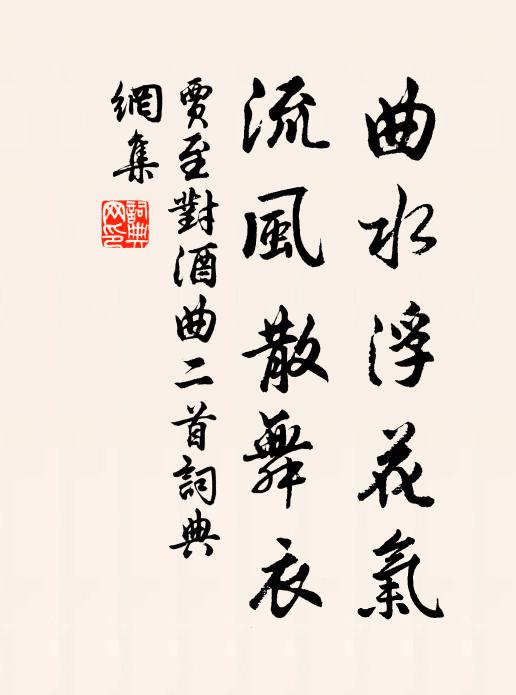 曲水浮花氣
流風散舞衣
賈至對酒曲二首詞典
網集
詞典網印